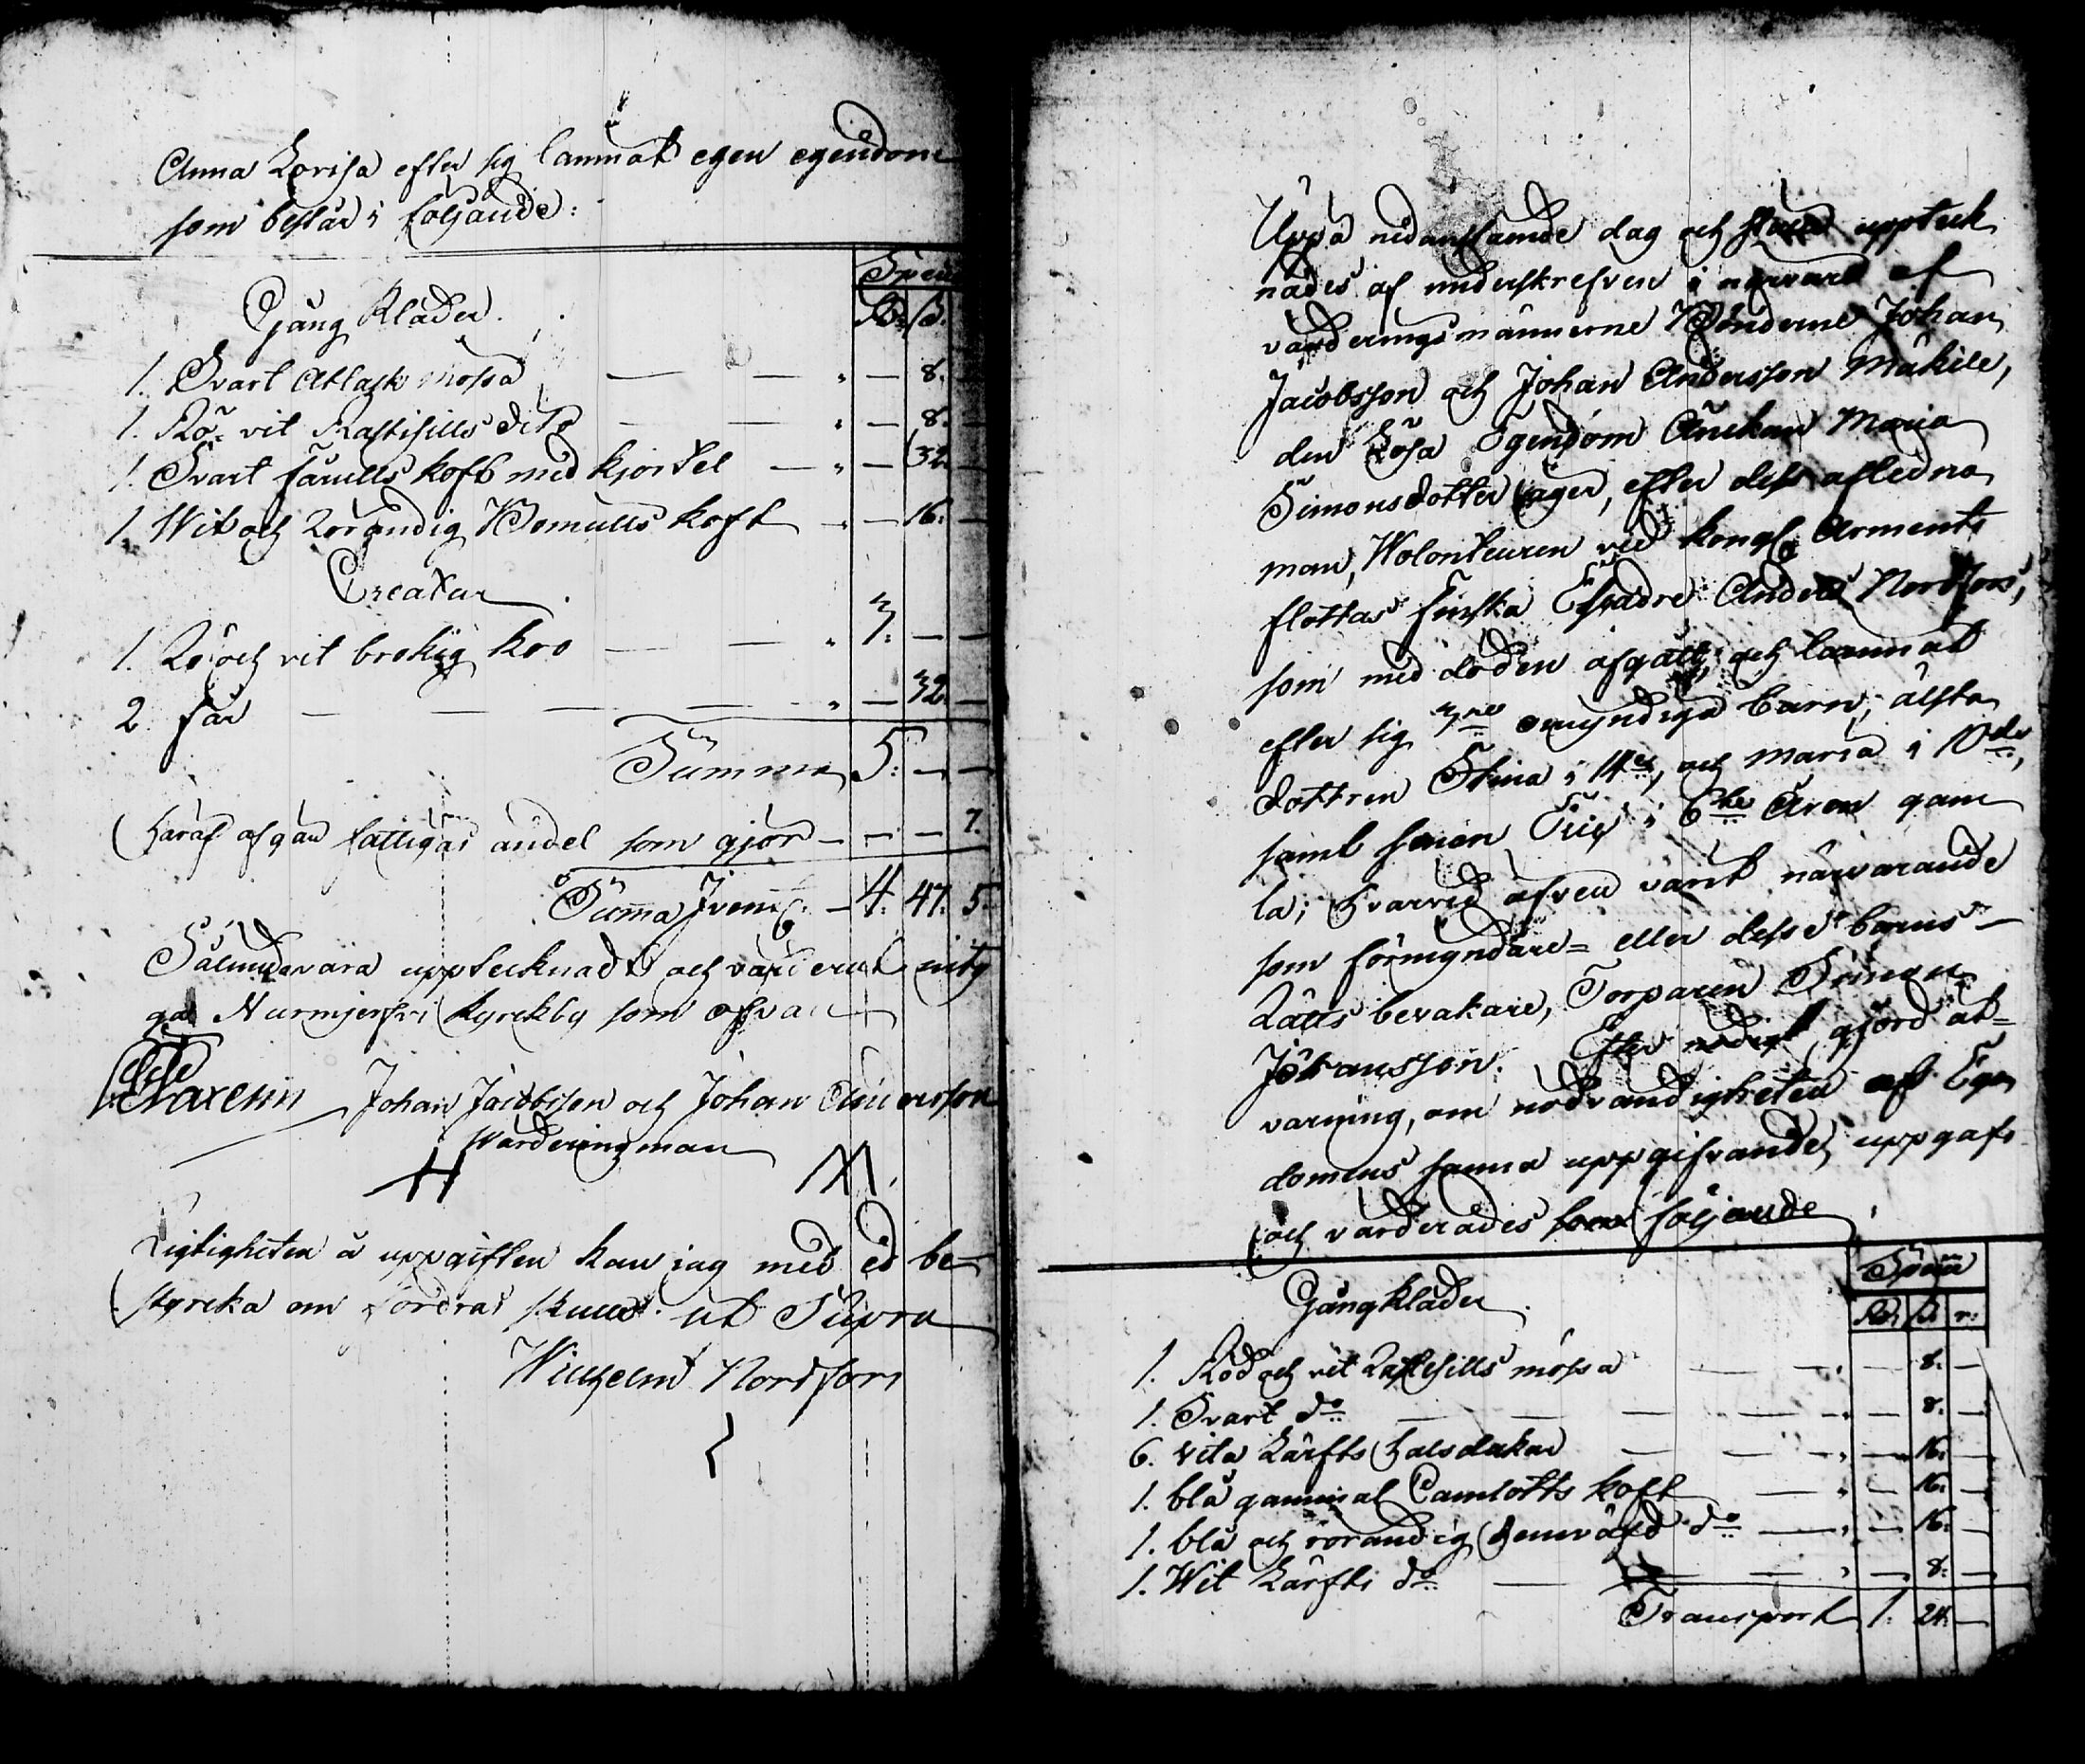 Anna Lovisa efter sig lämnat egen egendom
som består i följande:
Gång Kläder.
1. Svart Atlask mössa — — " — 8. —
1. Rö- vit Raftisills dito — — " — 8. —
1. Svart fårulls koft med kjortel — " — 32 —
1. Wit och rörandig Bomulls koft " — 16. —
Creatur
1. Rö och vit brokig koo — — " 3. — —
2 får — — — — " — 32 —
Summa 5. — —
häraf afgår fattigas andel som gjör — — — 7.
Summa — 4. 47. 5.
Sålunda vara upptecknadt och värderat, inty
gas Nurmijerfvi Kyrckby som ofvan
Johan Jacobsson och Johan Andersson
Wärderingsman
Rigtigheten å uppgiften kan jag med ed be-
styrcka om fordras skulle. ut Supra
Wilhelm Nordfors
Uppå nedanstående dag och ställe uppteck
nades af underskrefven i närvaro af
värderingsmännerne Bönderne Johan
Jacobsson och Johan Andersson Mäkile,
den Lösa Egendom Änckan Maria
Simonsdotter äger, efter dess afledna
man, Wolonteuren vid Kongl. Arments
flottas Finska Esquadre Anders Nordfors,
som med döden afgått, och lämnat
efter sig 3ne omyndiga barn, älsta
dottren Stina i 14de, och Maria i 10de,
samt sonen Eric i 6te Åren gam
la; hvarvid äfven varit närvarande
som förmyndare- eller desse barns
Rätts bevakare, Torparen Simon
Johansson. Efter gjord åt-
varning, om nödvändigheten af Egen
domens sanna uppgifvande, uppgafs
och värderades som följande
Gångkläder Specie
Rd. ß r.
1. Röd och vit Raftisills mössa — " — 8. —
1. Svart do — — — — " — 8. —
6. vita Lärfts halsdukar — — " — 16. —
1. blå gammal Camlotts koft — " — 16. —
1. blå och rörandig hemväfd do — " — 16. —
1. Wit Lärfts do — — — " — 8. —
Transport 1. 24. —